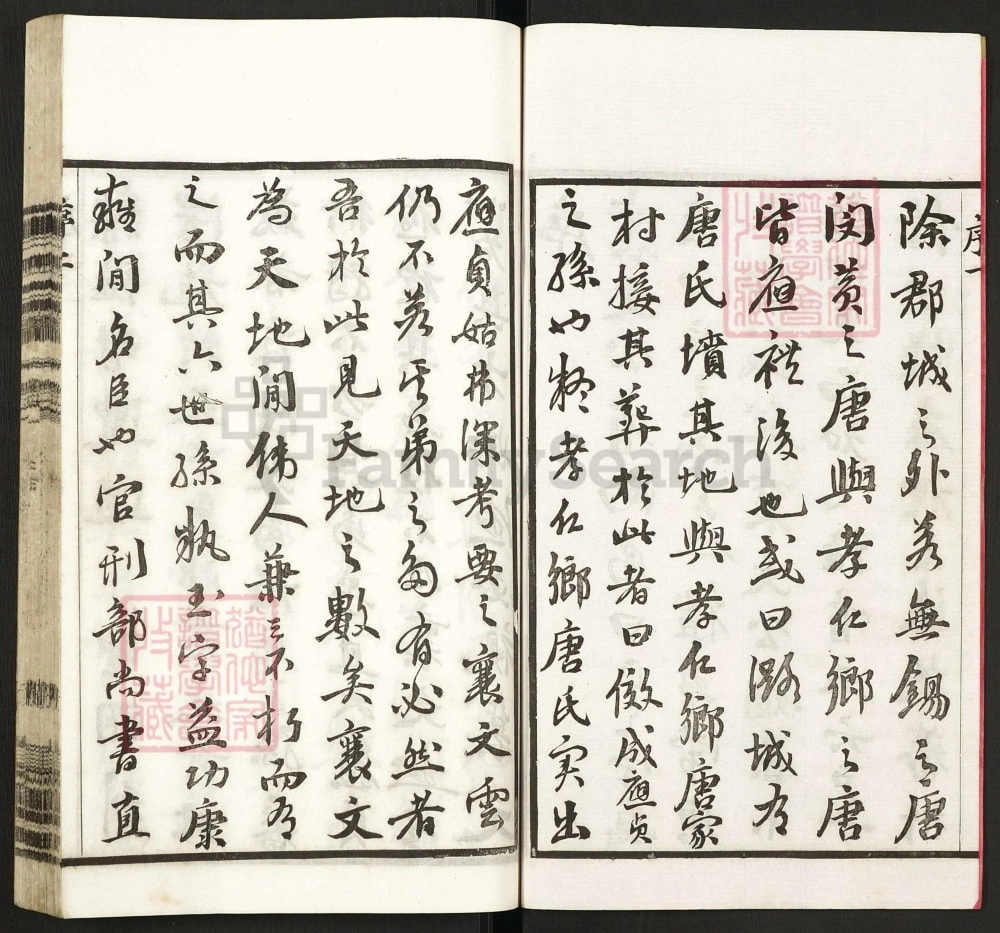 序一
除郡城之外若無錫之唐
閔黃之唐與孝仁鄉之唐
皆應祺後也或曰潞城有
唐氏墳其地與孝仁鄉唐家
村接其葬於此者曰儆成應貞
之孫也然孝仁鄉唐氏實出
應貞姑弗深考要之襄文雲
仍不若其弟之多有必然者
吾於此見天地之數矣襄文
為天地間偉人兼三不朽而有
之而其六世孫執玉字益功康
雍間名臣也官刑部尚書直
序二
FamilySearch